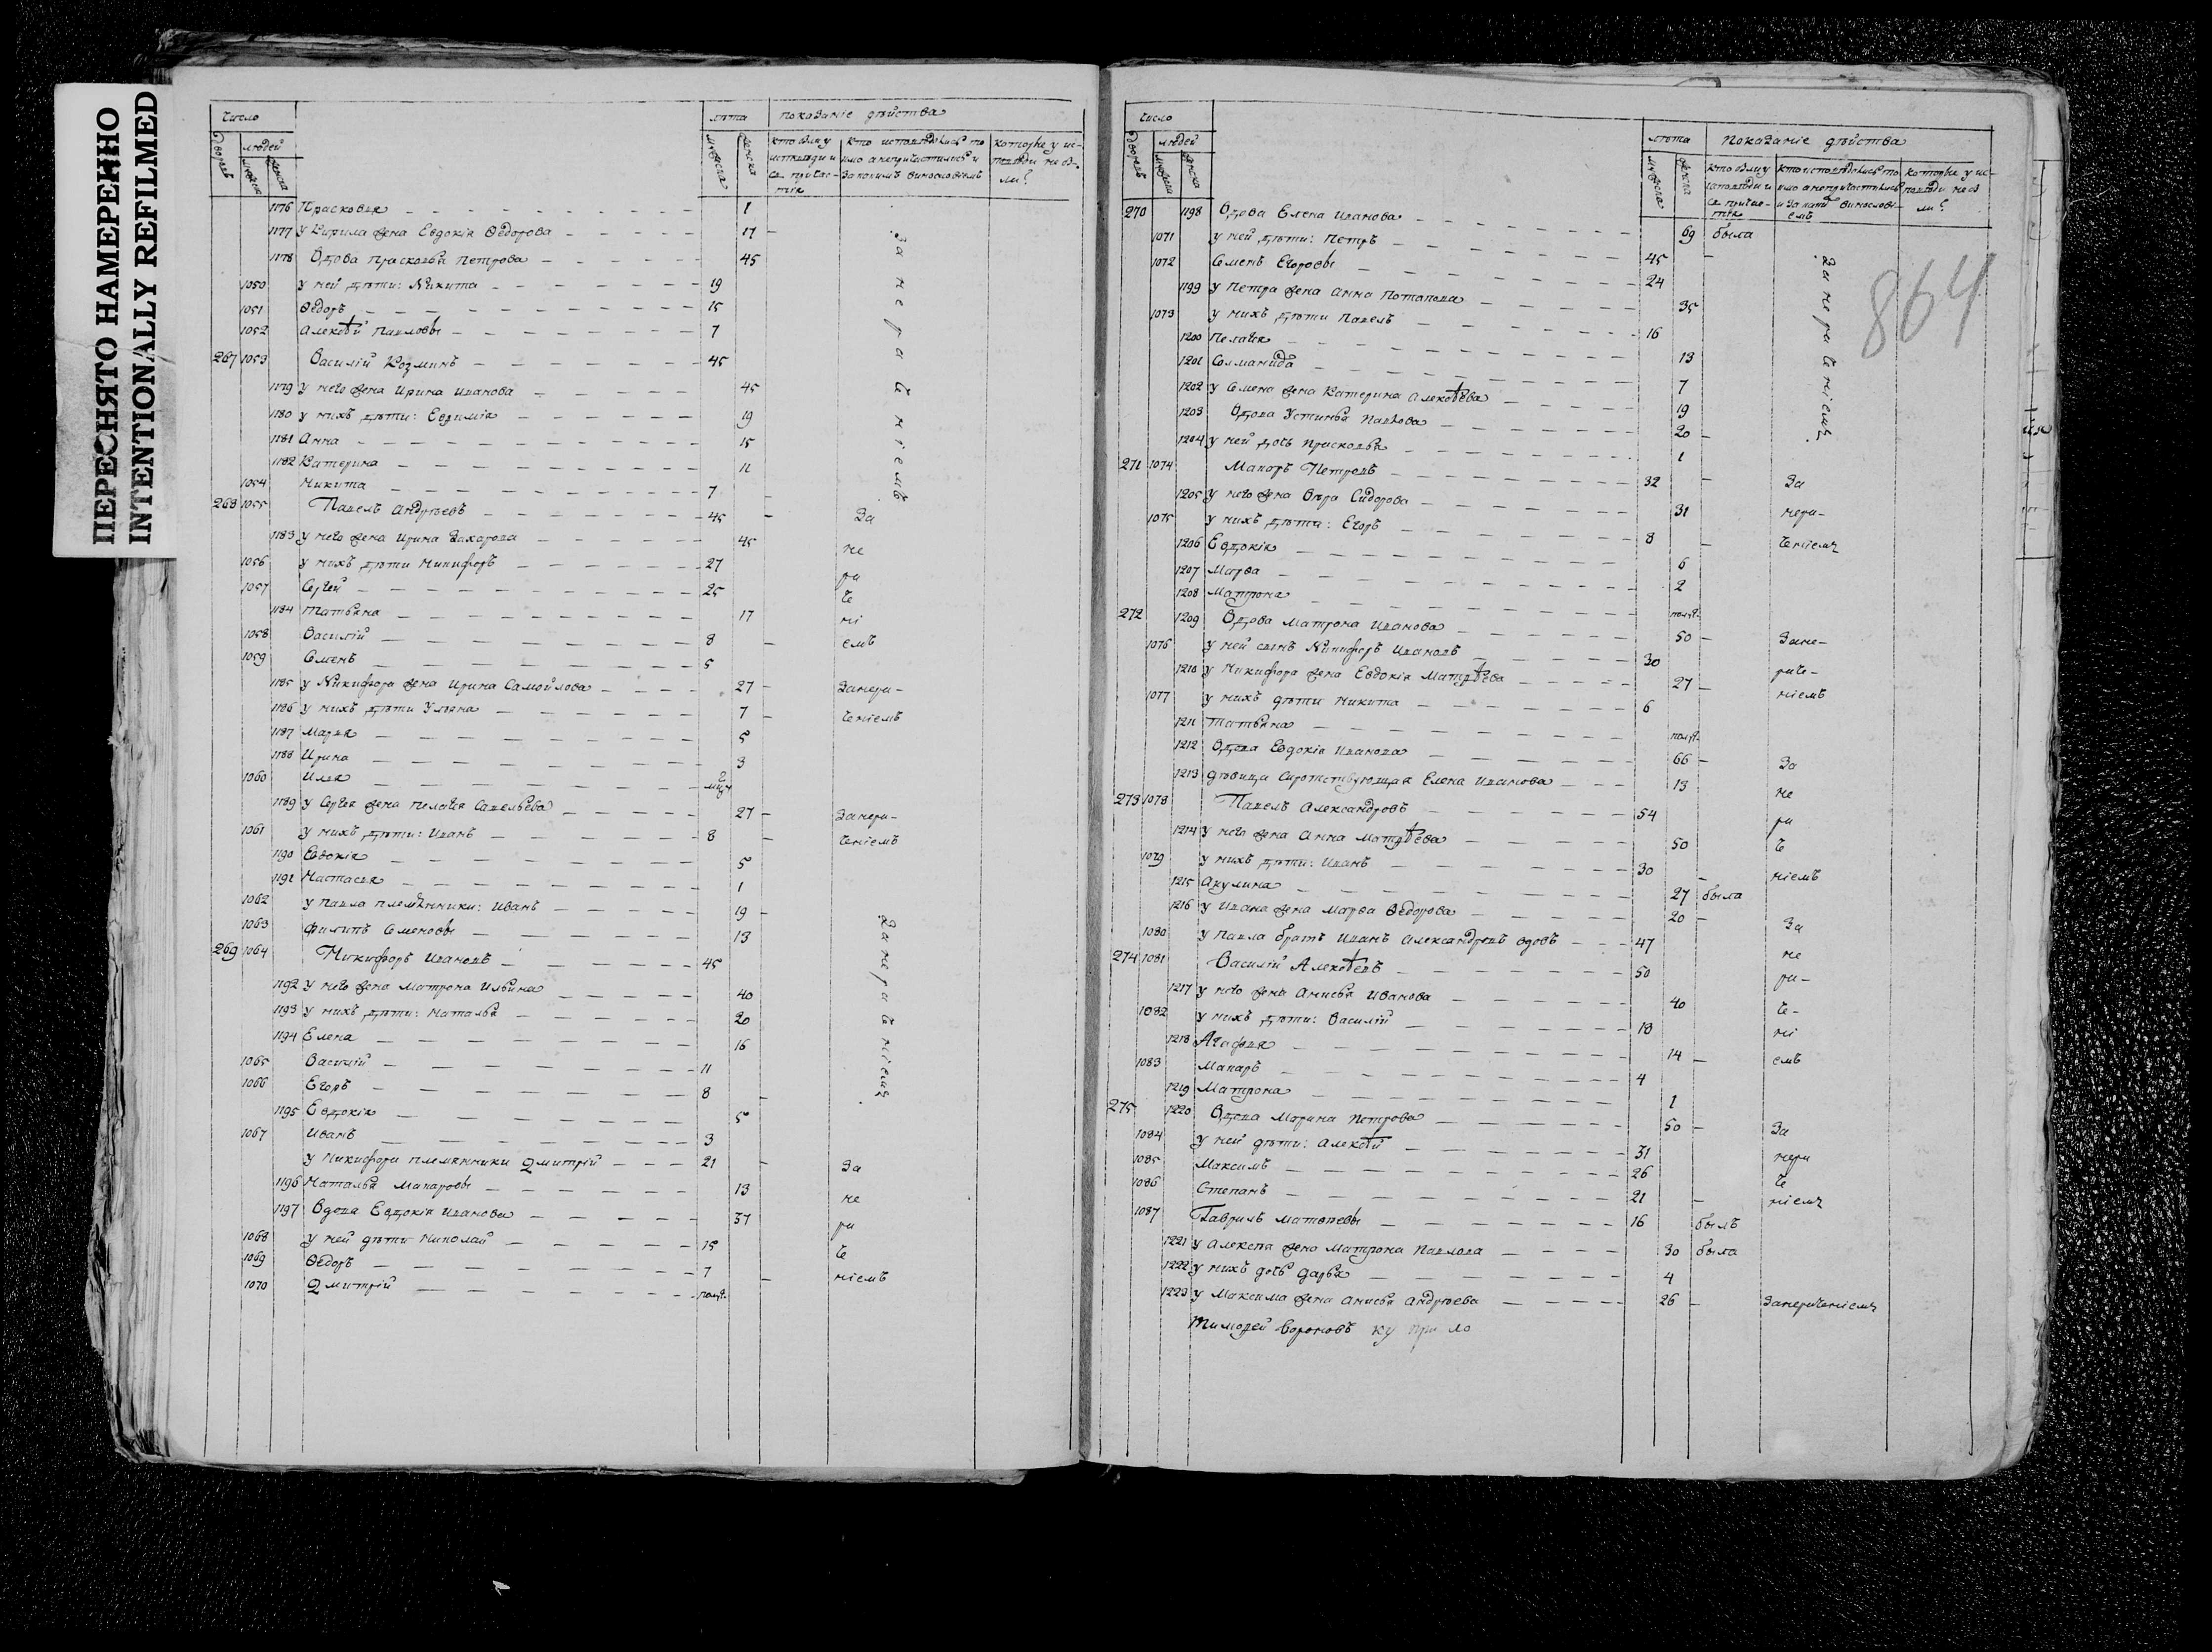 ПЕРЕСНЯТО НАМЕРЕННО
INTENTIONALLY REFILMED
число лѣта показаніе дѣйства
дворовъ людей мужеска женска
1176 Прасковья 1
1177 у Кирила жена Евдокія Ѳедорова 17 -
1178 Вдова Прасковья Петрова 45
1050 у ней дѣти: Никита 19
1051 Ѳедоръ 15
1052 Алексѣй Павловы 7
267 1053 Василій Козминъ 45
1179 у него жена Ирина Иванова 45
1180 у нихъ дѣти: Евфимія 19
1181 Анна 15
1182 Катерина 11
1054 Никита 7 -
за нераченіемъ
268 1055 Павелъ Андрѣевъ 45 - За
1183 у него жена Ирина Захарова 45 не
1056 у нихъ дѣти Никифоръ 27 ра
1057 Сергей 25 че
1184 Татьяна 17 ні
1058 Василій 8 - емъ
1059 Семенъ 5
1185 у Никифора жена Ирина Самойлова 27 - Занера-
1186 у нихъ дѣти Ульяна 7 - ченіемъ
1187 Марья 5
1188 Ирина 3
1060 Илья 2 мцы
1189 у Сергея жена Пелагея Савельева 27 - Занера-
1061 у нихъ дѣти: Иванъ 8 - ченіемъ
1190 Евдокія 5
1191 Настасья 1
1062 у Павла племянники: Иванъ 19 -
1063 Филипъ Семеновы 13
269 1064 Никифоръ Ивановъ 45
1192 у него жена Матрона Ильина 40
1193 у нихъ дѣти: Наталья 20
1194 Елена 16
1065 Василій 11
1066 Егоръ 8 -
за нераченіемъ
1195 Евдокія 5
1067 Иванъ 3
у Никифора племянники Дмитрій 21 - За
1196 Наталья Макаровы 13 не
1197 Вдова Евдокія Иванова 37 ра
1068 у ней дѣти Николай 15 че
1069 Ѳедоръ 7 - ніемъ
1070 Дмитрій полуг.
864
число лѣта Показаніе дѣйства
дворовъ людей мужеска женска
270 1198 Вдова Елена Иванова 69 была
1071 у ней дѣти: Петръ 45 -
1072 Семенъ Егоровы 24
1199 у Петра жена Анна Потапова 35
1073 у нихъ дѣти Павелъ 16
1200 Пелагея 13
1201 Соломанида 7
1202 у Семена жена Катерина Алексѣева 19
1203 Вдова Устинья Павлова 20 -
1204 у ней дочь Прасковья 1
за нераченіемъ
271 1074 Макаръ Петровъ 32 - За
1205 у него жена Вѣра Сидорова 31 нера-
1075 у нихъ дѣти: Егоръ 8 - ченіемъ
1206 Евдокія 6
1207 Марѳа 2
1208 Матрона полуг.
272 1209 Вдова Матрона Иванова 50 - Зане-
1076 у ней сынъ Никифоръ Ивановъ 30 раче-
1210 у Никифора жена Евдокія Матѳѣева 27 - ніемъ
1077 у нихъ дѣти Никита 6
1211 Татьяна полуг.
1212 Вдова Евдокія Иванова 66 - За
1213 дѣвица сиротствующая Елена Иванова 13 не
273 1078 Павелъ Александровъ 54 ра
1214 у него жена Анна Матѳѣева 50 че
1079 у нихъ дѣти: Иванъ 30 - ніемъ
1215 Акулина 27 была
1216 у Ивана жена Марѳа Ѳедорова 20 - За
1080 у Павла братъ Иванъ Александровъ вдовъ 47 не
274 1081 Василій Алексѣевъ 50 ра-
1217 у него жена Анисья Иванова 40 че-
1082 у нихъ дѣти: Василій 18 ні
1218 Агафья 14 - емъ
1083 Макаръ 4
1219 Матрона 1
275 1220 Вдова Марина Петрова 50 - За
1084 у ней дѣти: Алексѣй 31 нера
1085 Максимъ 26 че
1086 Степанъ 21 - ніемъ
1087 Гаврилъ Матвѣевы 16 былъ
1221 у Алексѣя жена Матрона Павлова 30 была
1222 у нихъ дочь Дарья 4
1223 у Максима жена Анисья Андрѣева 26 - Занераченіемъ
Тимоѳей Вороновъ